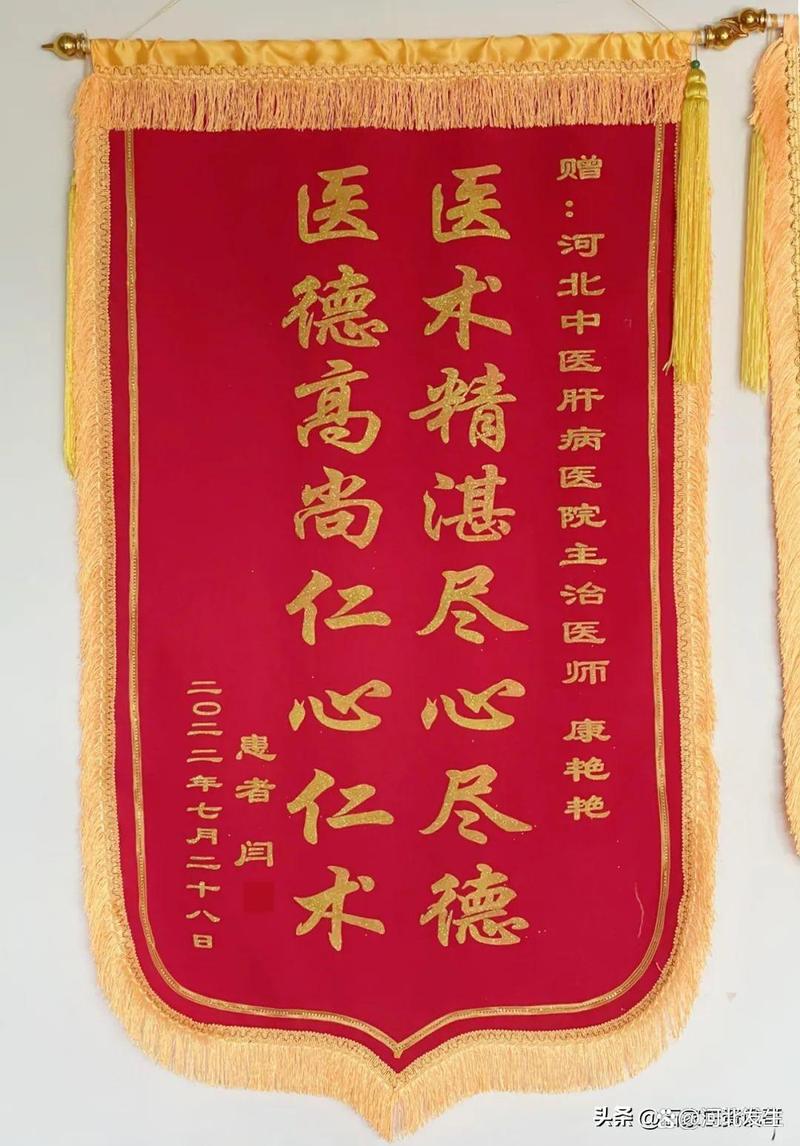 赠：河北中医肝病医院主治医师 康艳艳
医术精湛尽心尽德
医德高尚仁心仁术
患者 闫
二〇二二年七月二十八日
头条